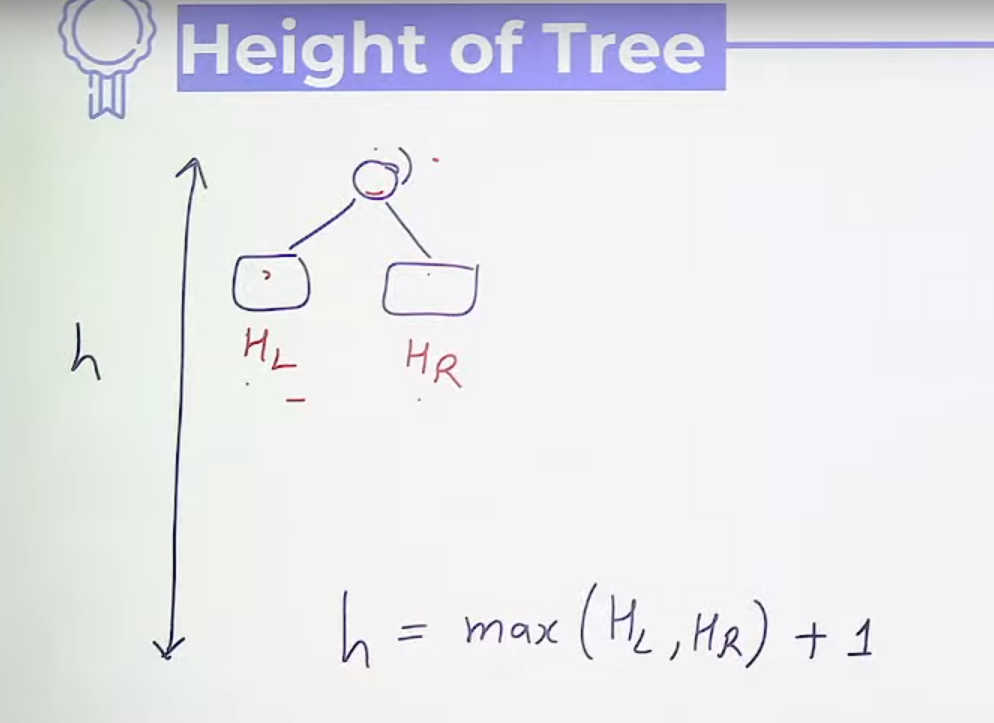 Height of Tree
h
H_L H_R
h = max (H_L, H_R) + 1